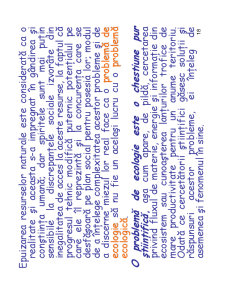 Epuizarea resurselor naturale este considerată ca o
realitate și aceasta s-a impregnat în gândirea și
conștiința umană; dar spiritele sunt mai puțin
sensibile la discrepanțele sociale izvorâte din
inegalitatea de acces la aceste resurse, la faptul că
progresul tehnic modifică puternic potențialul pe
care ele îl reprezintă și la concurența care se
desfășoară pe plan social pentru posesia lor; modul
de a înțelege complexitatea acestor probleme și de
a discerne miezul lor real face ca o problemă de
ecologie să nu fie un același lucru cu o problemă
ecologică.
O problemă de ecologie este o chestiune pur
științifică, așa cum apare, de pildă, cercetarea
privind fluxul de materie, energie și informație din
ecosistem sau cunoașterea lanțurilor trofice de
mare productivitate pentru un anume teritoriu.
Odată ce cercetătorii științifici găsesc soluții și
răspunsuri acestor probleme, înțeleg de
asemenea și fenomenul în sine.
18